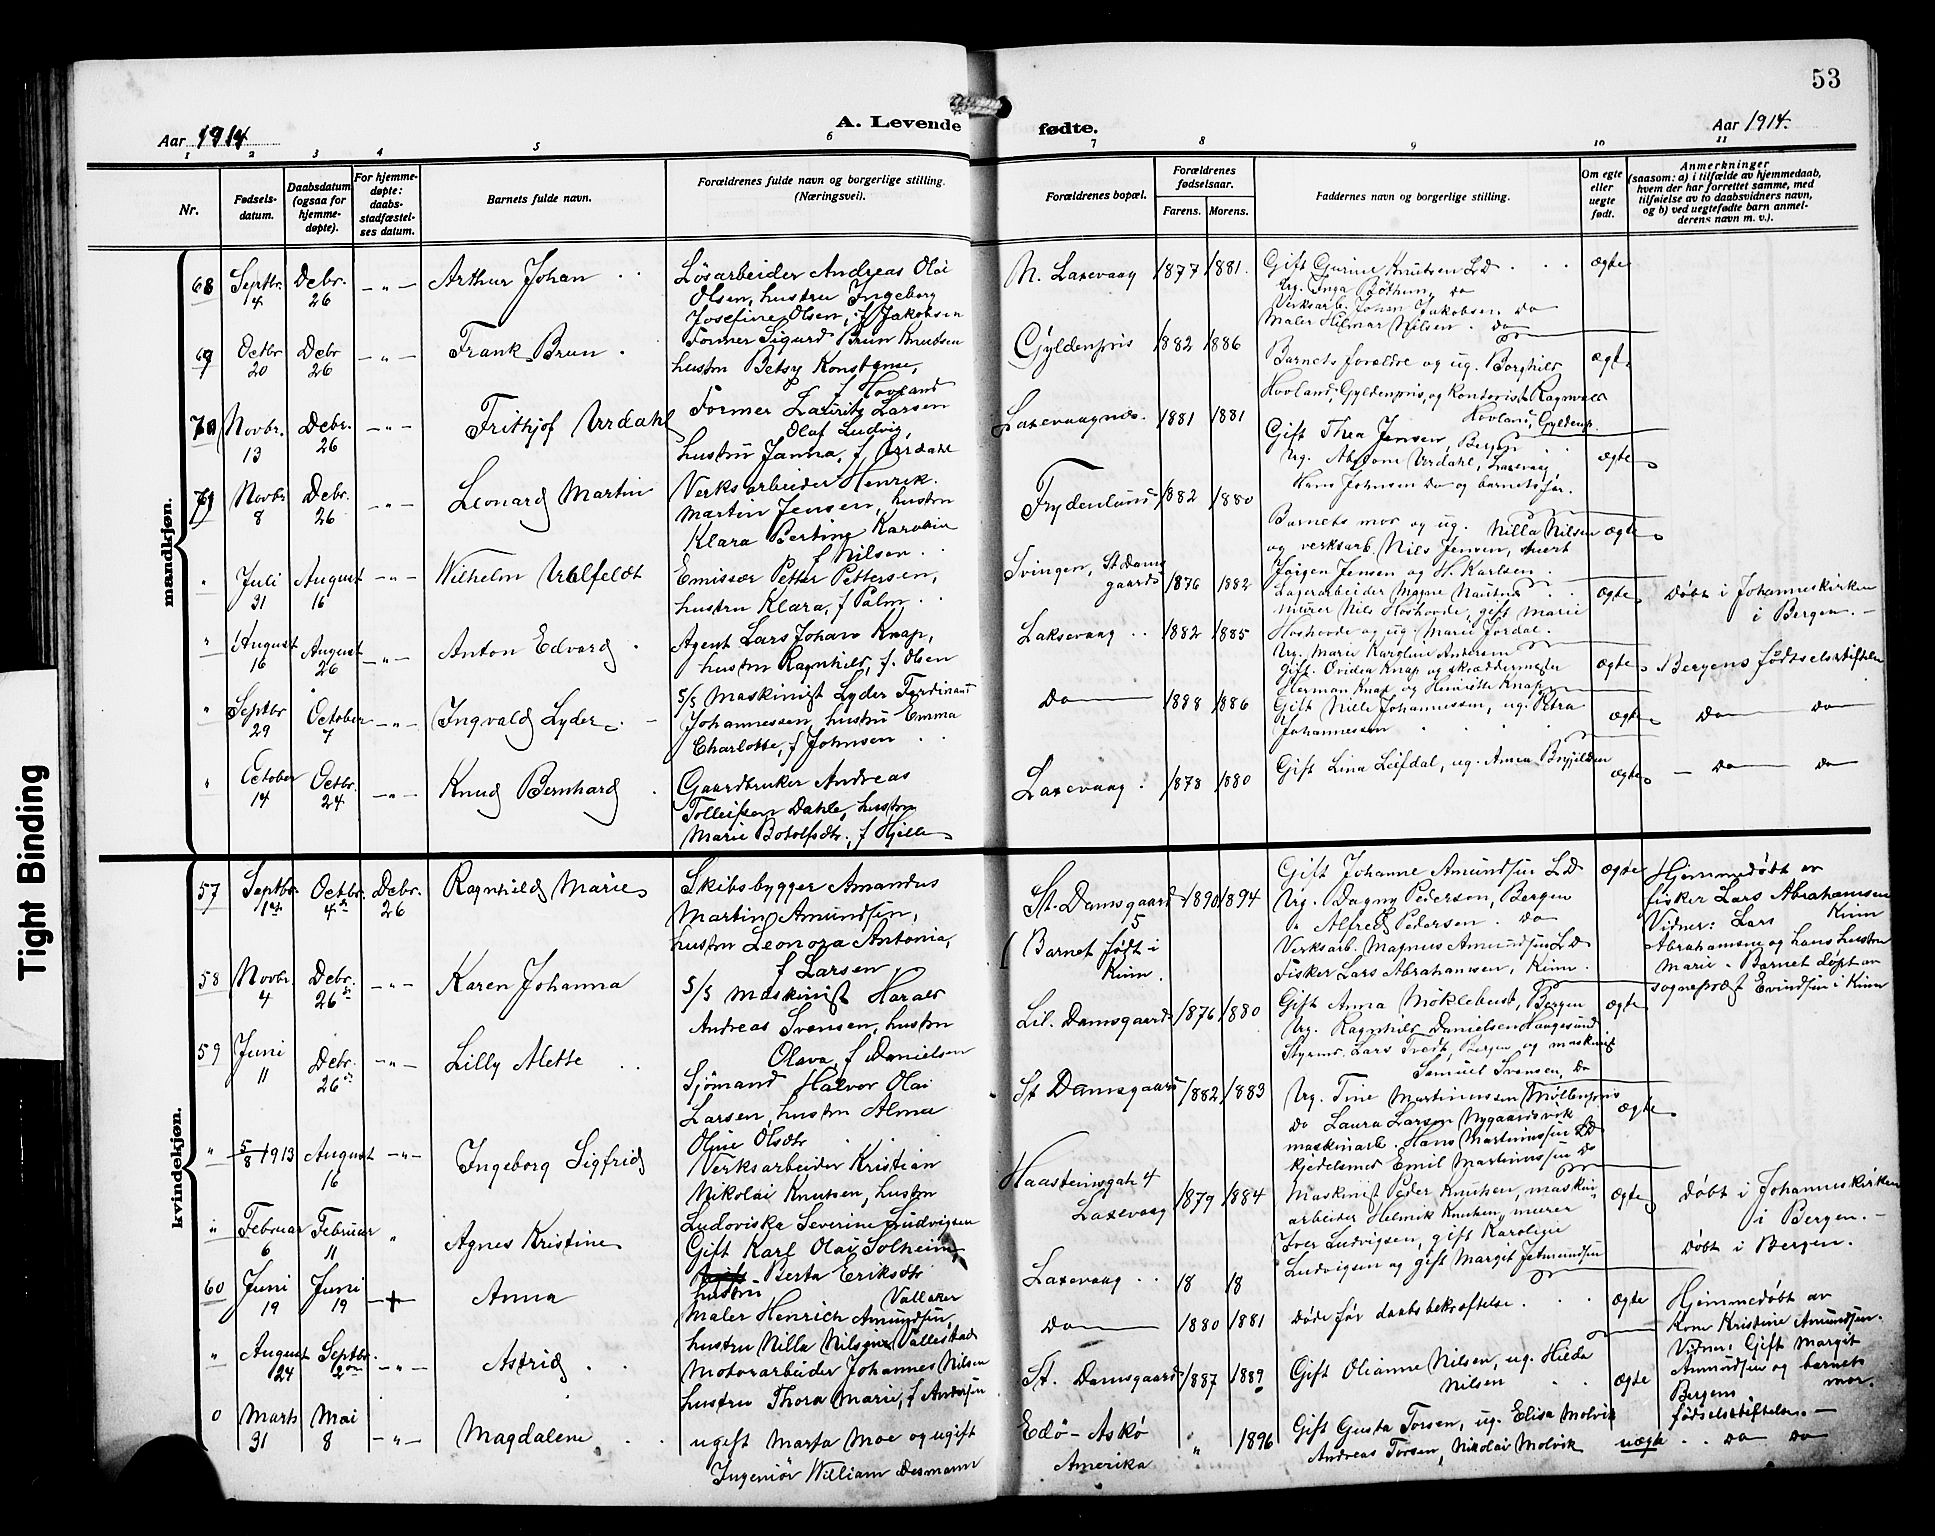 53
Aar 1914
A. Levende
fødte.
Aar 1914.
1 2 3 4 5 6 7 8 9 10 11
Nr.
Fødsels-
datum.
Daabsdatum
(ogsaa for
hjemme-
døpte).
For hjemme-
døpte:
daabs-
stadfæstel-
ses datum.
Barnets fulde navn.
Forældrenes fulde navn og borgerlige stilling.
(Næringsvei).
Forældrenes bopæl.
Forældrenes
fødselsaar.
Farens. Morens.
Faddernes navn og borgerlige stilling.
Om egte
eller
uegte
født.
Anmerkninger
(saasom: a) i tilfælde av hjemmedaab,
hvem der har forrettet samme, med
tilføielse av to daabsvidners navn,
og b) ved uegtefødte barn anmel-
derens navn m. v.).
mandkjøn.
68 Septbr. 4 Debr. 26 -"- Arthur Johan
Løsarbeider Andreas Olai
Olsen, hustru Ingeborg
Josefine Olsen, f Jakobsen
N. Laxevaag 1877 1881.
Gift Gurine Knutsen L.D.
Ug. Inga Bøthun, Do
Verksarb. Johan Jakobsen Do
Maler Hilmar Nilsen. Do
ægte
69 Octbr 20 Debr 26 -"- Frank Brun
Former Sigurd Brun Knutsen
hustru Betsy Konstance,
f Hovland
Gyldenpris 1882 1886
Barnets forældre og ug. Borghild
Hovland, Gyldenpris, og Kontorist Ragnvald
Hovland, Gyldenp.
ægte
70 Novbr. 13 Debr. 26 -"- Frithjof Urdahl
Former Lauritz Larsen
Olaf Ludvig,
hustru Janna, f Urdahl
Laxevaagnes. 1881 1881
Gift Thea Jensen, Bergen
Ug. Urdahl, Laxevaag,
Hans Johnsen Do og barnets far.
ægte
71 Novbr 8 Debr. 26 -"- Leonard Martin
Verksarbeider Henrik
Martin Jensen, hustru
Klara Berting Karoline
f Nilsen
Frydenlund 1882 1880
Barnets mor og ug. Nilla Nilsen
og verksarb. Nils Jensen,
Jørgen Jensen og H. Karlsen.
ægte
" Juli 31 August 16 -"- Wilhelm
Emissær Petter Pettersen,
hustru Klara, f Palm
Svingen, St. Dams
gaard 1876 1882
Lagerarbeider Magne
murer Nils Hoshovde, gift Marie
Hoshovde og ug. Marie Jordal.
ægte
Døbt i Johanneskirken
i Bergen. -
" August 16 August 26 -"- Anton Edvard
Agent Lars Johan Knap,
hustru Ragnhild, f. Olsen
Laksevaag 1882 1885
Ug. Marie Karoline Andersen
Gift. Ovidia Knap og skræddermester
Herman Knap og Henriette Knap
ægte
Bergens fødtselsstiftelse
" Septbr 29 October 7 -"- Ingvald Lyder
S/S Maskinist Lyder Ferdinand
Johannessen, hustru Emma
Charlotte, f Johnsen
Do 1888 1886
Gift Nille Johannessen, ug. Petra
Johannessen
ægte
Do Do
" October 14 Octbr. 24 -"- Knud Bernhard
Gaardbruker Andreas
Tolleifsen Dahle, hustru
Marie Botolfsdtr., f Hjelle
Laxevaag 1878 1880
Gift Lina Leifdal, ug. Anna
ægte
- Do Do
kvindekjøn.
57 Septbr 1st Octbr. 4de Debr. 26 Ragnhild Marie
Skibsbygger Amandus
Martin Amundsen,
hustru Leonora Antonia,
f Larsen
St. Damsgaard 1890 1894
(Barnet født i
Kinn.
Gift Johanne Amundsen L.D
Ug. Dagny Pedersen, Bergen
" Alfred Pedersen. Do
Verksarb. Magnus Amundsen L.D
Fisker Lars Abrahamsen, Kinn.
ægte
Hjemmedøbt av
fisker Lars Abrahamsen
Vidner: Lars Kinn
Abrahamsen og hans hustru
Marie. Barnet døpt av
sogneprest Evindsen i Kinn
58 Novbr. 4 Debr. 26de -"- Karen Johanna
S/S Maskinist Harald
Andreas Svensen, hustru
Olava, f Danielsen
Lil. Damsgaard 1876 1880
Gift Anna Møklebust, Bergen
Ug. Ragnhild Danielsen Haugesund
Styrmd. Lars Tvedt, Bergen og maskinist
Samuel Svensen, Do
ægte
59 Juni 11 Debr. 26de -"- Lilly Alette
Sjömand Halvor Olai
Larsen, hustru Alma
Oline Olsdtr
St Damsgaard 1882 1883
Ug. Tine Martinussen Møllenpris
Do Laura Larsen Nygaardsvik
maskinarb. Hans Martinussen L.D
kjedelsmed Emil Martinussen Do
ægte
" 5/8 1913 August 16 -"- Ingeborg Sigfrid
Verksarbeider Kristian
Nikolai Knutsen, hustru
Ludoviska Severine Ludvigsen
Haasteinsgate 4
Laxevaag 1879 1884
Maskinist Peder Knutsen, maskin
arbeider Helmik Knutsen, murer
Iver Ludvigsen, gift Karoline
Ludvigsen og gift Margit
ægte
Døbt i Johanneskirken
i Bergen. -
" Februar 6 Februar 11 " Agnes Kristine
Gift Karl Olai Solheim
hustru Berta Eriksdtr
Vallaker
Laxevaag 18 18
Døbt i Bergen.
60 Juni 19 Juni 19 -+ Anna
Maler Henrich Amundsen,
hustru Nilla Nilsine Vallestad
Do 1880 1881
Døde før daabsbekræftelse
ægte
Hjemmedøbt av
kone Kristine Amundsen.
Vidner: Gift Margit
Amundsen og barnets
mor.
" August 24 Septbr. 2den -"- Astrid
Motorarbeider Johannes Nilsen
hustru Thora Marie, f Andersen
St. Damsgaard 1887 1889
Gift Olianne Nilsen, ug. Hilda
Nilsen
ægte
Bergens
fødselsstiftelse. -
0 Marts 31 Mai 8 -"- Magdalene
ugift Marta Moe og ugift
Ingeniør William Desmann
Edö - Askø " 1896
Amerika "
Gift Gusta Torsen, ug. Elisa Molvik
Andreas Torsen, Nikolai Molvik
uægte
Do Do
Tight Binding